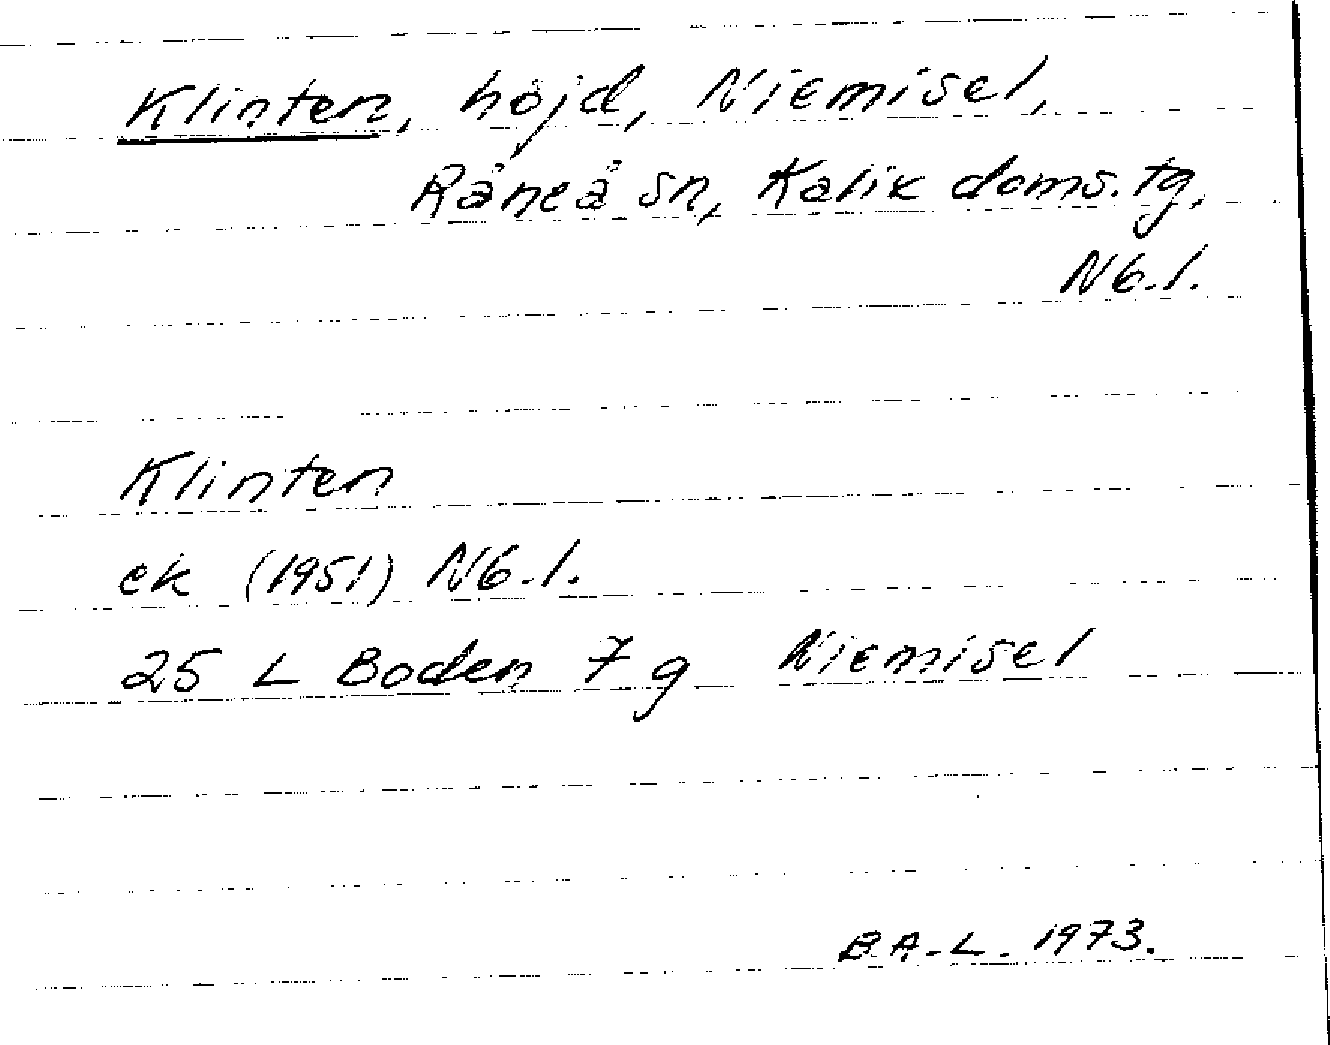 Klinten, höjd, Niemisel,
Råneå sn, Kalix doms. tg,
Nb.l.
Klinten
ek (1951) Nb.l.
25 L Boden 7 g Niemisel
B.A-L. 1973.